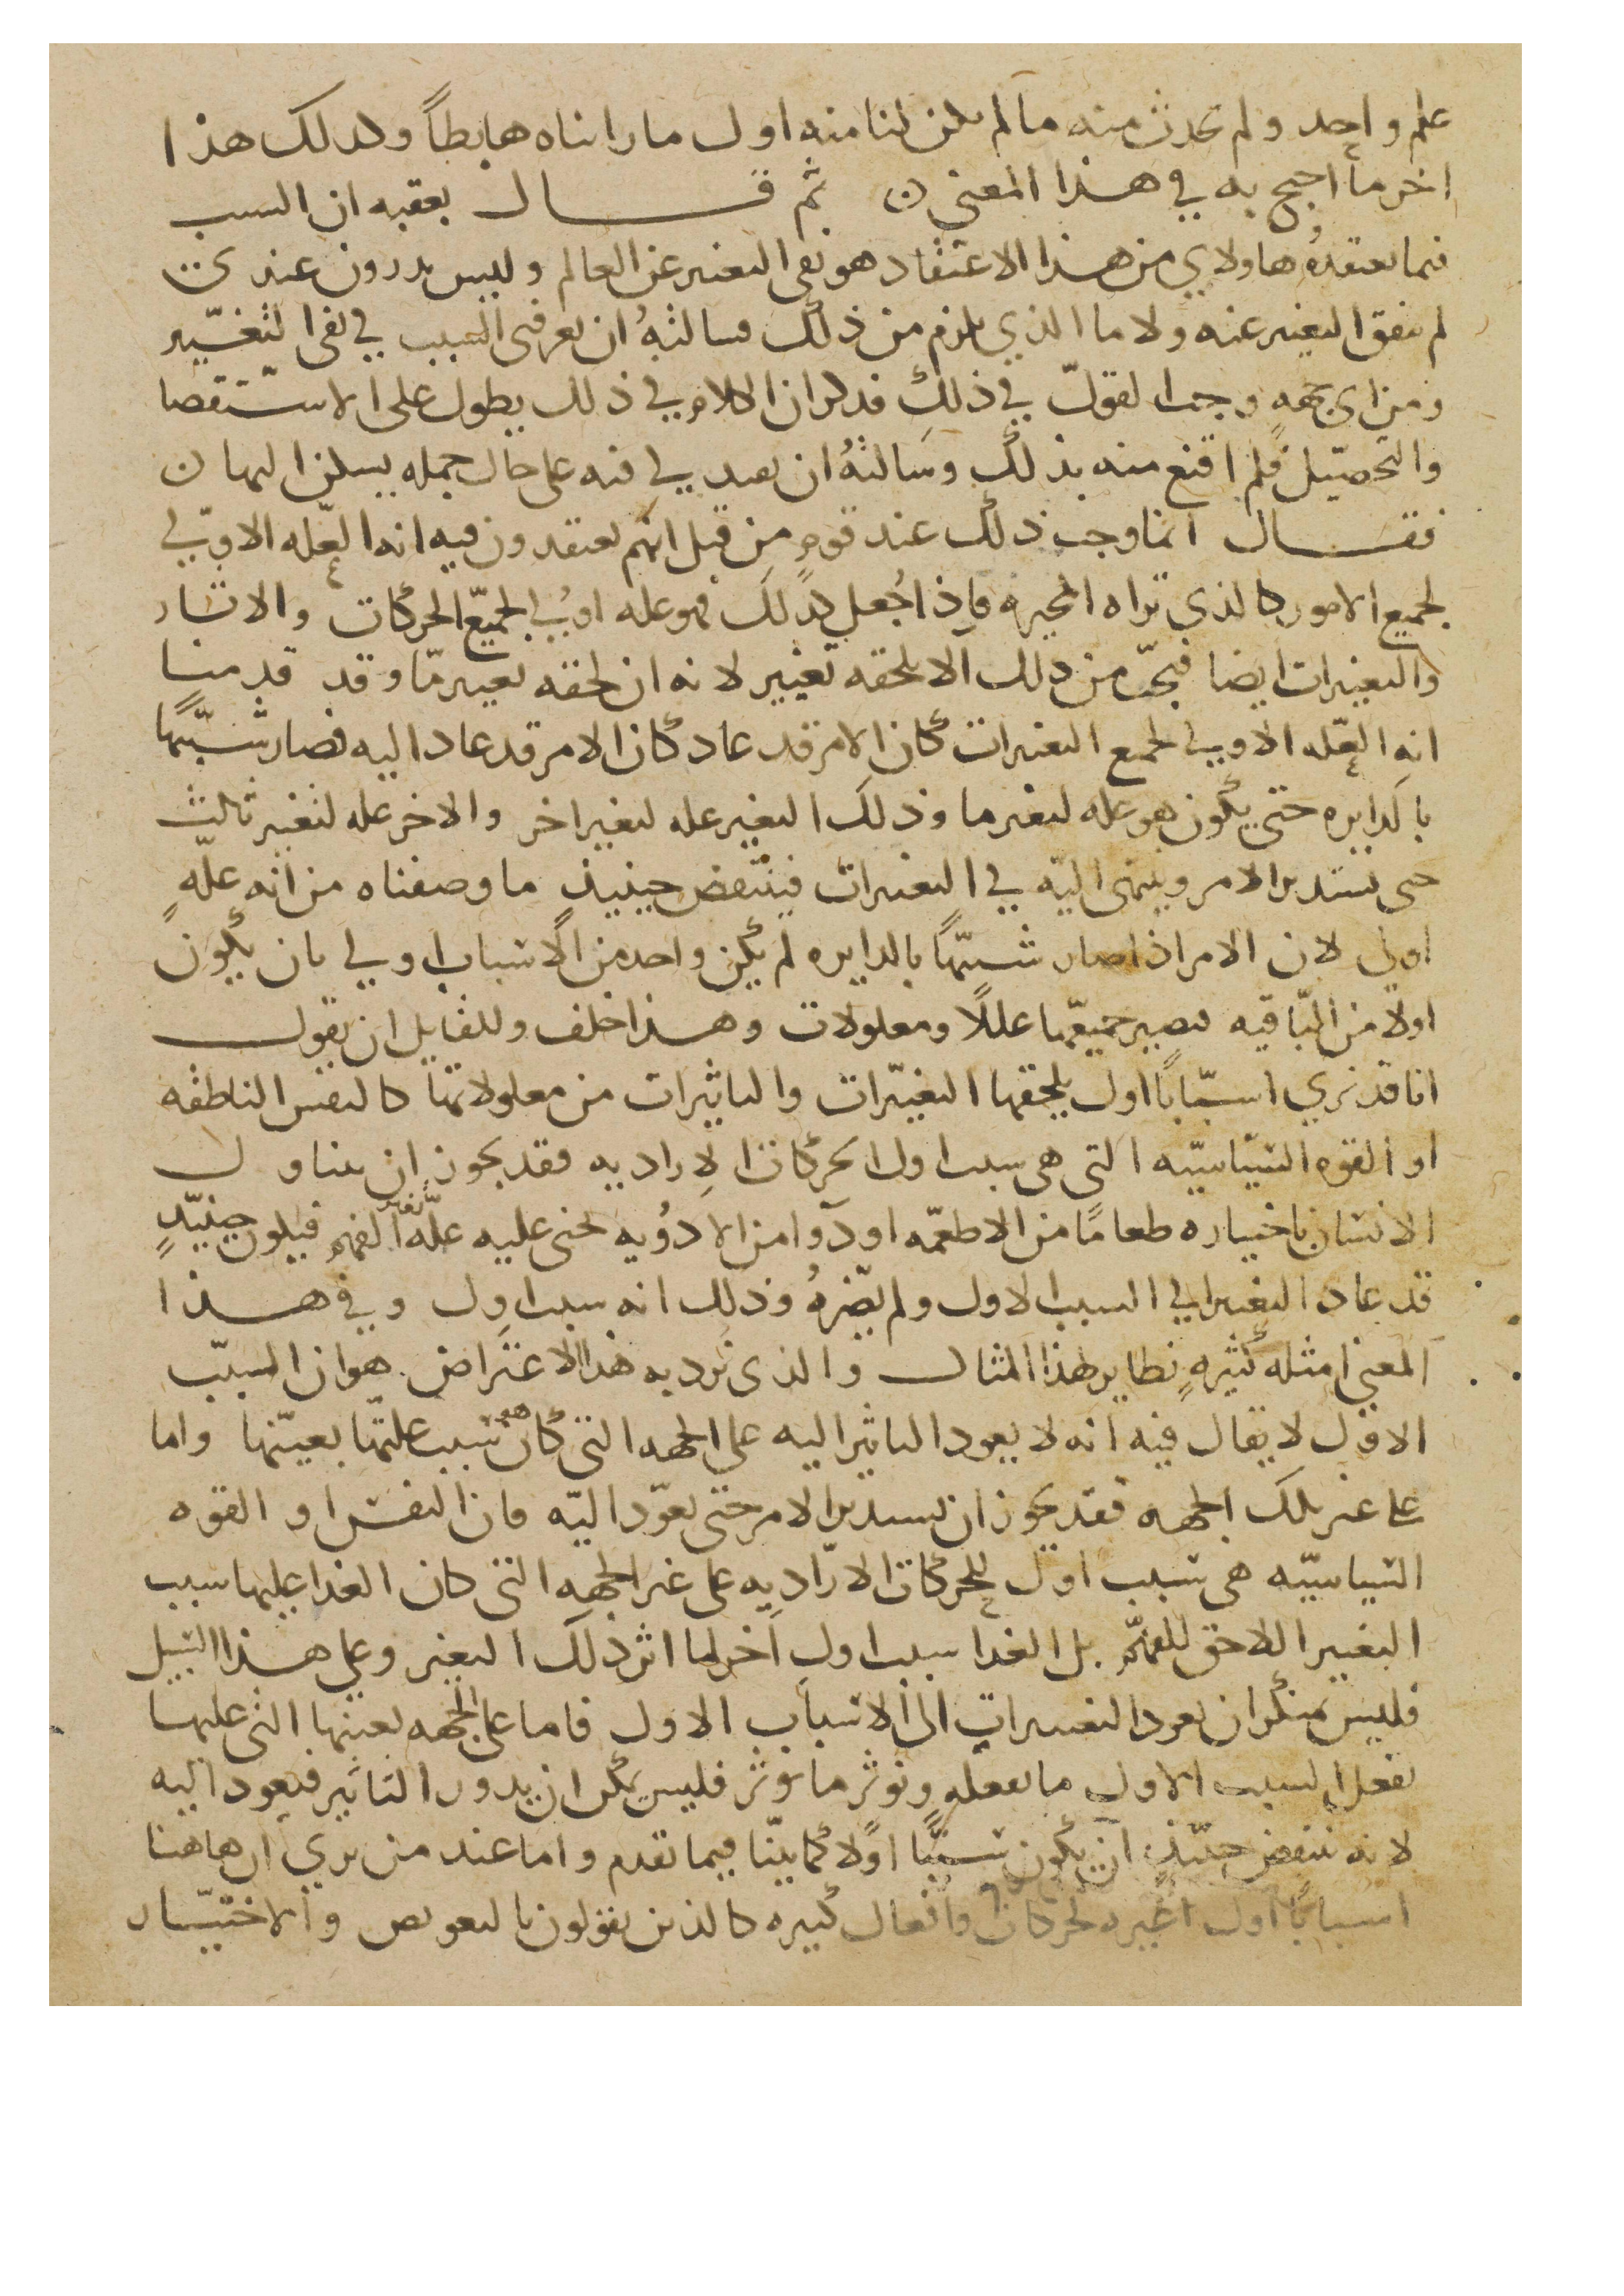 علم واحد ولم تحدث منه ما لم يكن لنا منه اول ما راىناه هابطاً وكدلك هذا
اخر ما احتج به في هذا المعنى ثم قال بعقبه ان السبب
فىما تعتقدهُ هاولاي من هذا الاعتقاد هو نفى التغىىر عن العالم ولىىس يدرون عندى
لم ىىفى التغىىر عنه ولا ما الذي يلزم من ذلك فسالتهُ ان يعرفنى السبب في نفى التغيّىر
ومن اى جهه وجب القول في ذلك فدكر ان الكلام في ذلك يطول على الاستقصا
والتحصيل فلم اقنع منه بذلك وسالتهُ ان يفيدني فيه على حال جمله يسكن اليها
فقال انما وجب ذلك عند قومٍ من قبل انهم يعتقدون فيه انه العله الاولي
لجميع الامور كالذى تراه المجبره فاذا جُعل كذلك فهو عله اولي لجميع الحركات والاثار
والتغييرات ايضا فيجب من ذلك الا يلحقه تغيير لانه ان لحقه تغيير مّا وقد قدمنا
انه العله الاولي لجميع التغيرات كان الامر قد عاد كان الامر قد عاد اليه فصار شبيهًا
بالدايره حتى يكون هو عله لتغير ما وذلك التغيير عله لتغيير اخر والاخر عله لتغير ثالث
حتى يستدير الامر وينتهى اليه في التغيرات فينتقض حينيذ ما وصفناه من انه علّهٍ
اولي لان الامر اذا صار شبيهًا بالدايره لم يكن واحد من الاسباب اولي بان يكون
اولا من الباقيه فتصير جميعها عللًا ومعلولات وهذا خلف وللقايل ان يقول
انا قد نري اسبابًا اول يلحقها التغيّرات والتاثيرات من معلولاتها كالنفس الناطقه
او القوه السياسيّه التى هى سبب اول لحركاتنا الاراديه فقد يجوز ان يتناول
الانسان باختياره طعامًا من الاطعمه او دوا من الادويه تجنى عليه علّه تغير الفهم فيكون حينيذٍ
قد عاد التغيير الي السبب الاول ولم يضرهُ وذلك انه سبب اول وفي هذا
المعنى امثله كثيرهٍ نظاير لهذا المثال والذى نرد به هذا الاعتراض هو ان السبب
الاول لا يقال فيه انه لا يعود التاثير اليه على الجهه التى كان هو سبب علتها بعينها واما
على غير تلك الجهه فقد يجوز ان يستدير الامر حتى يعود اليه فان النفس او القوه
السياسيّه هى سبب اول للحركات الاراديه على غير الجهه التى كان الغدا عليها سبب
التغيير اللاحق للفهم بل الغدا سبب اول اخر لما اثر ذلك التغير وعلى هذا السبيل
فليس منكر ان تعود التغييرات الى الاسباب الاول فاما على الجهه بعينها التى عليها
يفعل السبب الاول ما يفعله ويوثر ما يوثر فليس يمكن ان يدور التاثير فيعود اليه
لانه ينتقض حينيذٍ ان يكون سببًا اولًا كما بيّنا فيما تقدم واما عند من يري ان هاهنا
اسبابًا اول لحركات وافعال كثيره كالذين يقولون بالتفويض والاختيار